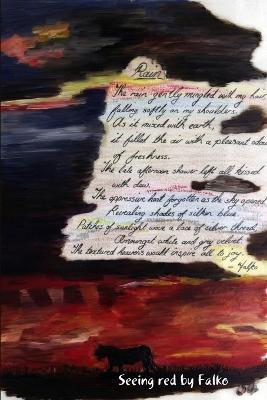 Rain
The rain gently mingled with my hair,
falling softly on my shoulders.
As it mixed with earth,
it filled the air with a pleasant odour
of freshness.
The late afternoon shower left all kissed
with dew.
The oppression now forgotten as the sky opened
Revealing shades of silken blue.
Patches of sunlight wove a lace of silver thread,
Amongst white and grey velvet.
The textured heavens would inspire all to joy.
- Falko
Seeing red by Falko